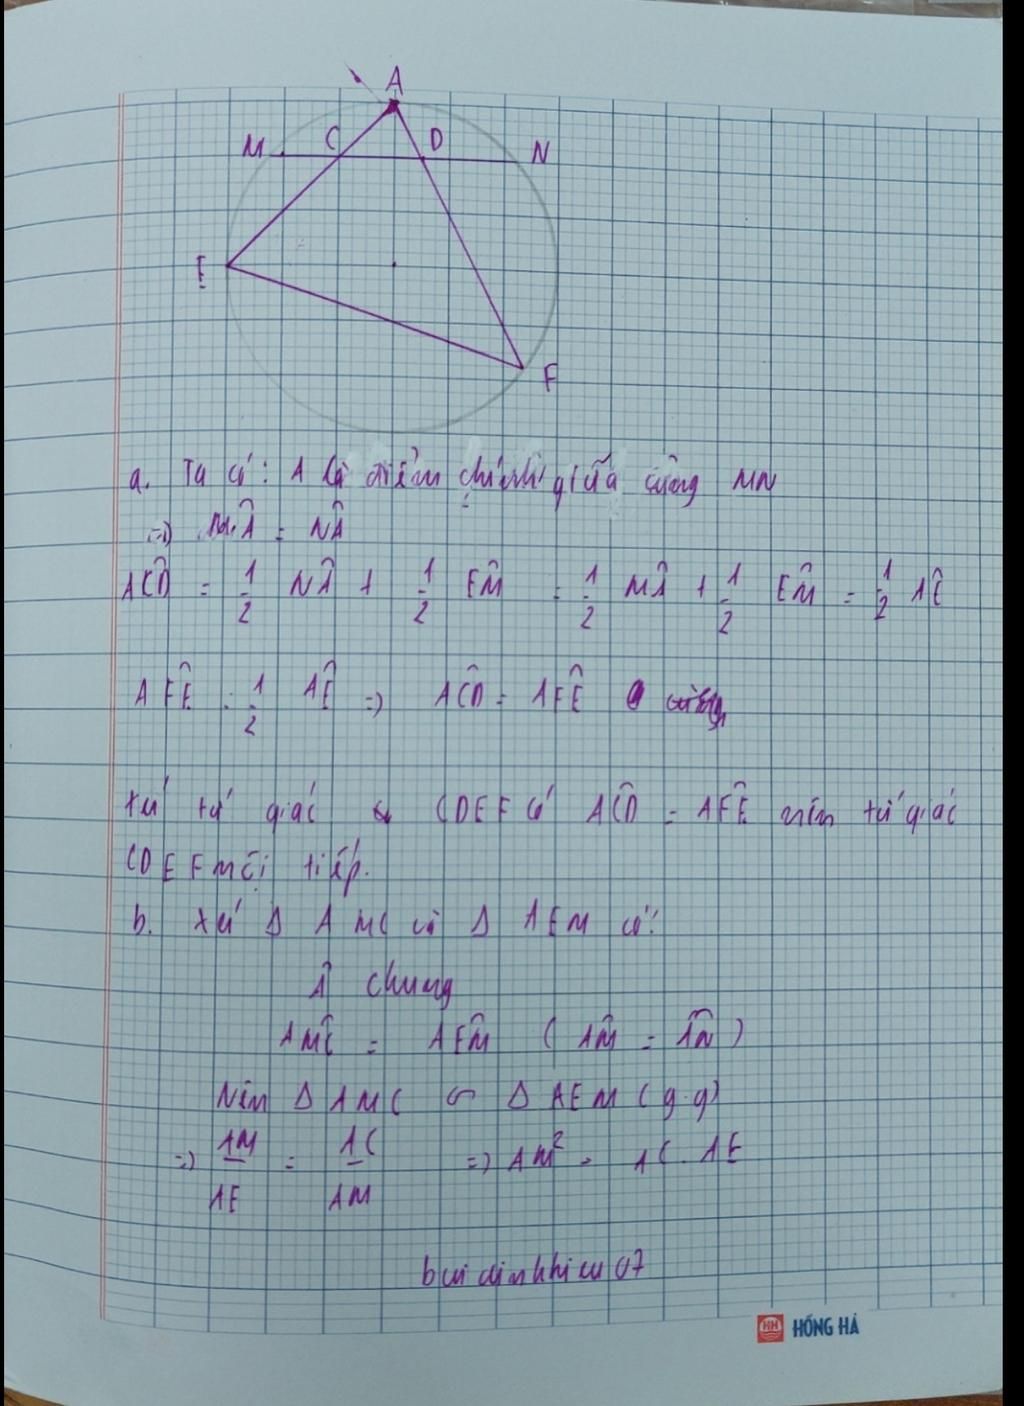 A
M C D N
E
F
a. Ta có: A là điểm chính giữa cung MN
=> MÂ = NÂ
ACD̂ = 1/2 NÂ + 1/2 EM̂ = 1/2 MÂ + 1/2 EM̂ = 1/2 AÊ
AFÊ = 1/2 AÊ => ACD̂ = AFÊ
xét tứ giác CDEF có ACD̂ = AFÊ nên tứ giác
CDEF nội tiếp.
b. xét Δ AMC và Δ AEM có:
 chung
AMĈ = AEM̂ ( AM̂ = AN̂ )
Nên Δ AMC ∽ Δ AEM (g.g)
=> AM/AE = AC/AM => AM² = AC.AE
buidinhhieu07
HH HỒNG HÀ